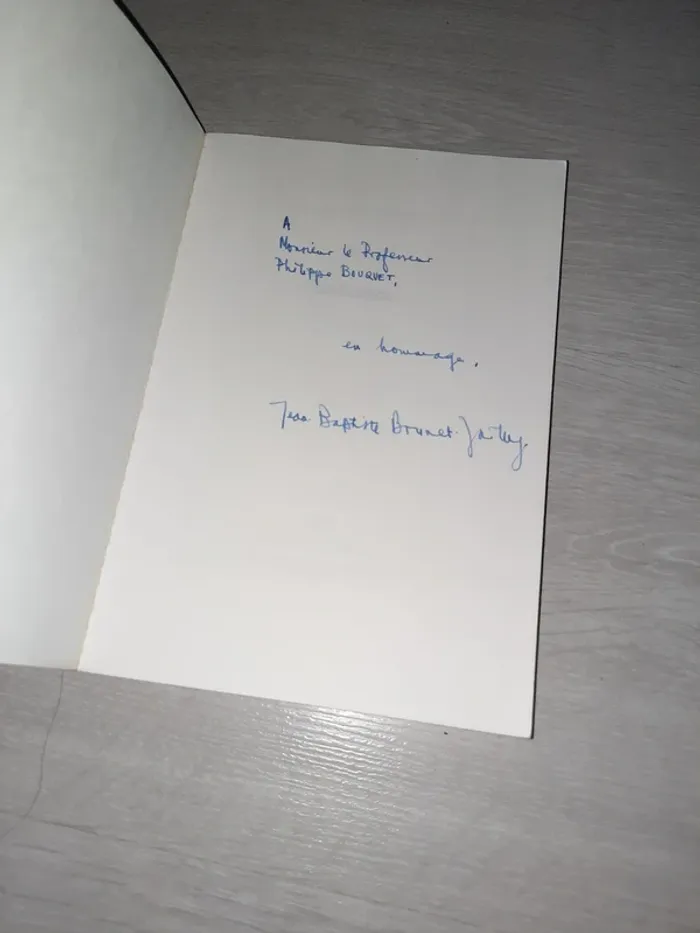 A
Monsieur le Professeur
Philippe BOUQUET,
en hommage.
Jean Baptiste Brunet-Jailly.